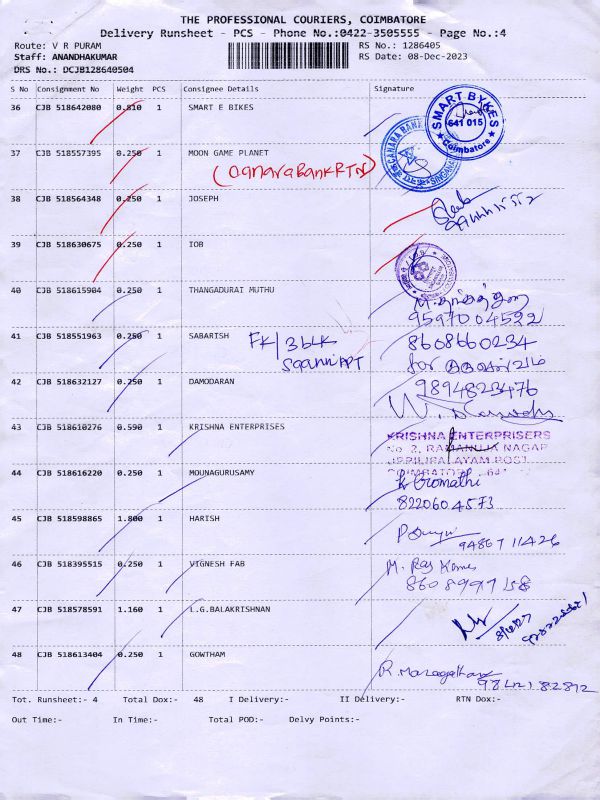 THE PROFESSIONAL COURIERS, COIMBATORE
Delivery Runsheet - PCS - Phone No.:0422-3505555 - Page No.:4
Route: V R PURAM RS No.: 1286405
Staff: ANANDHAKUMAR RS Date: 08-Dec-2023
DRS No.: DCJB128640504
S No Consignment No Weight PCS Consignee Details Signature
36 CJB 518642080 0.810 1 SMART E BIKES
SMART BYKES 641 015 Coimbatore
37 CJB 518557395 0.250 1 MOON GAME PLANET
CANARA BANK
38 CJB 518564348 0.250 1 JOSEPH
39 CJB 518630675 0.250 1 IOB
40 CJB 518615904 0.250 1 THANGADURAI MUTHU
9597004522
41 CJB 518551963 0.250 1 SABARISH
8608660234
for
42 CJB 518632127 0.250 1 DAMODARAN
9894823476
43 CJB 518610276 0.590 1 KRISHNA ENTERPRISES
KRISHNA ENTERPRISERS
No 2, RAMANUJA NAGAR
UPPILIPALAYAM POST
COIMBATORE - 641
44 CJB 518616220 0.250 1 MOUNAGURUSAMY
8220604573
45 CJB 518598865 1.800 1 HARISH
94867 11426
46 CJB 518395515 0.250 1 VIGNESH FAB
M. Raj Kumar
47 CJB 518578591 1.160 1 L.G.BALAKRISHNAN
48 CJB 518613404 0.250 1 GOWTHAM
Tot. Runsheet:- 4 Total Dox:- 48 I Delivery:- II Delivery:- RTN Dox:-
Out Time:- In Time:- Total POD:- Delvy Points:-